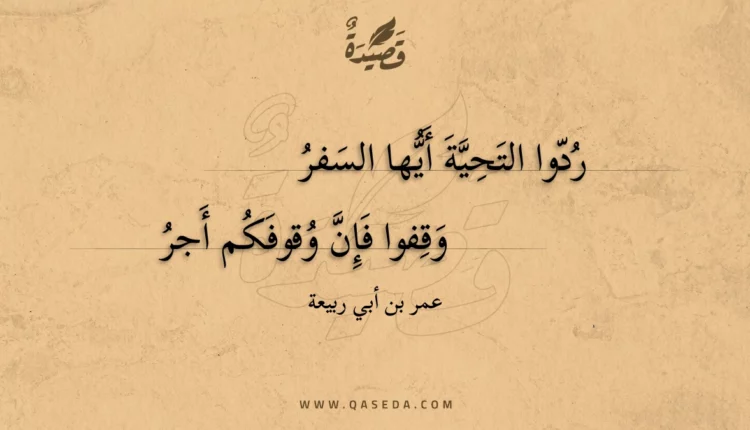 قَصِيدَةٌ
رُدّوا التَحِيَّةَ أَيُّها السَفرُ
وَقِفوا فَإِنَّ وُقوفَكُم أَجرُ
عمر بن أبي ربيعة
WWW.QASEDA.COM